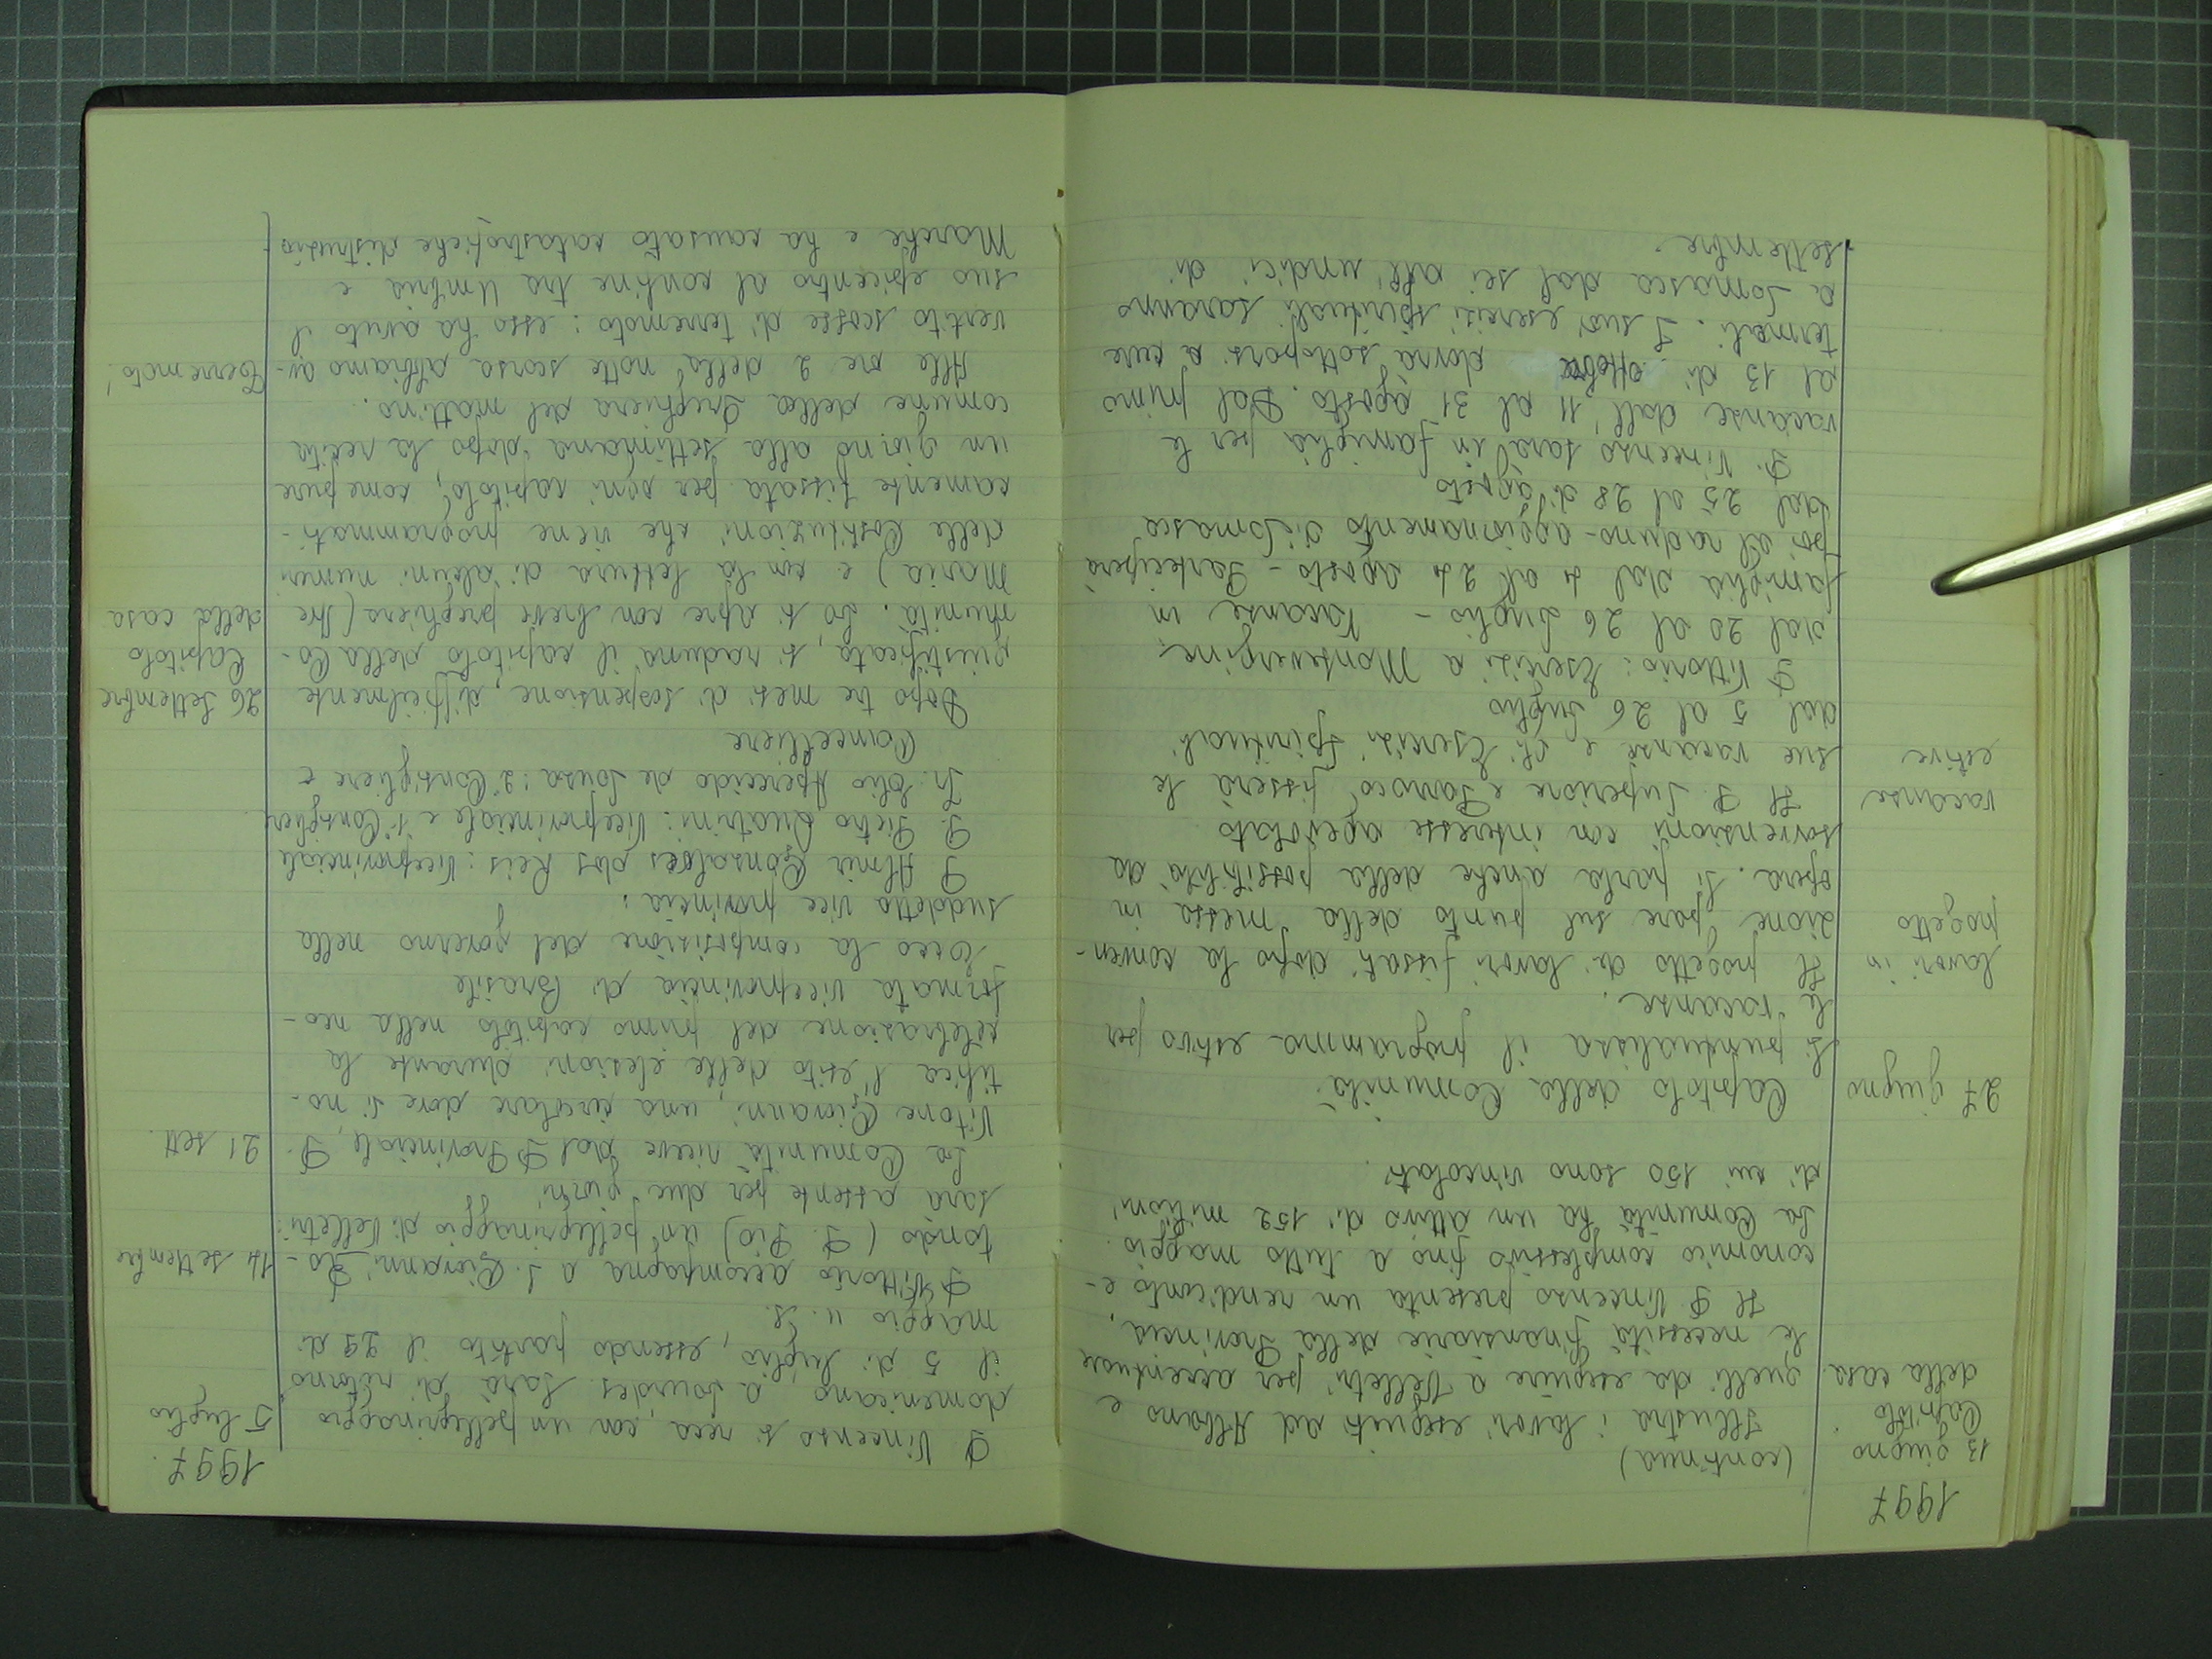 1997
13 giugno (continua)
Capitolo Illustra i lavori eseguiti ad Albano e
della casa quelli da eseguire a Velletri per accentuare
le necessità finanziarie della Provincia.
Il P. Vincenzo presenta un rendiconto e-
conomico complessivo fino a tutto maggio.
La Comunità ha un attivo di 152 milioni
di cui 150 sono vincolati.
27 giugno Capitolo della Comunità.
Si puntualizza il programma estivo per
le vacanze.
lavori in Il progetto dei lavori fissati dopo la conven-
progetto zione pare sul punto della messa in
opera. Si parla anche della possibilità da
sovvenzioni con interesse agevolato
vacanze Il P. Superiore e Parroco fisserà le
estive sue vacanze e gli Esercizi Spirituali
dal 5 al 26 luglio
P. Vittorio: Esercizi a Montevergine
dal 20 al 26 luglio - Vacanze in
famiglia dal 4 al 24 agosto - Parteciperà
poi al raduno-aggiornamento di Somasca
dal 25 al 28 di agosto
P. Vincenzo sarà in famiglia per le
vacanze dall'11 al 31 agosto. Dal primo
al 13 di ottobre dovrà sottoporsi a cure
termali. I suoi esercizi spirituali saranno
a Somasca dal sei all'undici di
settembre.
1997.
5 luglio P Vincenzo si reca, con un pellegrinaggio
domenicano a Lourdes. Sarà di ritorno
il 5 di luglio, essendo partito il 29 di
maggio u. s.
14 settembre P Vittorio accompagna a S. Giovanni Ro-
tondo (P. Pio) un pellegrinaggio di Velletri:
sarà assente per due giorni
21 sett. La Comunità riceve dal P Provinciale, P.
Vitone Giovanni, una circolare dove si no-
tifica l'esito delle elezioni durante la
celebrazione del primo capitolo nella neo-
formata viceprovincia di Brasile
Ecco la composizione del governo nella
suddetta vice provincia:
P Almir Gonsalves dos Reis: Viceprovinciale
P. Pietro Quatrini: Viceprovinciale e 1° Consigliere
Fr. Aparecido de Sousa: 2° Consigliere e
Cancelliere
26 settembre Dopo tre mesi di sospensione, difficilmente
Capitolo giustificata, si raduna il capitolo della Co-
della casa munità. Lo si apre con breve preghiera (Ave
Maria) e con la lettura di alcuni numeri
delle Costituzioni che viene programmati-
camente fissata per ogni capitolo, come pure
un giorno alla settimana dopo la recita
comune della Preghiera del mattino.
Terremoto! Alle ore 2 della notte scorsa abbiamo av-
vertito scosse di terremoto: esso ha avuto il
suo epicentro al confine tra Umbria e
Marche e ha causato catastrofiche distruzioni